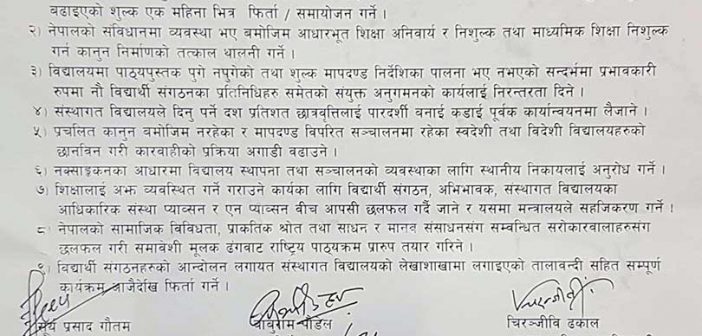 बढाइएको शुल्क एक महिना भित्र फिर्ता / समायोजन गर्ने ।
२) नेपालको संविधानमा व्यवस्था भए बमोजिम आधारभूत शिक्षा अनिवार्य र निशुल्क तथा माध्यमिक शिक्षा निशुल्क
गर्न कानुन निर्माणको तत्काल थालनी गर्ने ।
३) विद्यालयमा पाठ्यपुस्तक पुगे नपुगेको तथा शुल्क मापदण्ड निर्देशिका पालना भए नभएको सन्दर्भमा प्रभावकारी
रुपमा नौ विद्यार्थी संगठनका प्रतिनिधिहरु समेतको संयुक्त अनुगमनको कार्यलाई निरन्तरता दिने ।
४) संस्थागत विद्यालयले दिनु पर्ने दश प्रतिशत छात्रवृत्तिलाई पारदर्शी वनाई कडाई पूर्वक कार्यान्वयनमा लैजाने ।
५) प्रचलित कानुन बमोजिम नरहेका र मापदण्ड विपरित सञ्चालनमा रहेका स्वदेशी तथा विदेशी विद्यालयहरुको
छानविन गरी कारवाहीको प्रक्रिया अगाडी वढाउने ।
६) नक्साङ्कनका आधारमा विद्यालय स्थापना तथा सञ्चालनको व्यवस्थाका लागि स्थानीय निकायलाई अनुरोध गर्ने ।
७) शिक्षालाई अझ व्यवस्थित गर्ने गराउने कार्यका लागि विद्यार्थी संगठन, अभिभावक, संस्थागत विद्यालयका
आधिकारिक संस्था प्याव्सन र एन प्याव्सन वीच आपसी छलफल गर्दै जाने र यसमा मन्त्रालयले सहजिकरण गर्ने ।
८ नेपालको सामाजिक विविधता, प्राकृतिक श्रोत तथा साधन र मानव संसाधनसंग सम्बन्धित सरोकारवालाहरुसंग
छलफल गरी समावेशी मूलक ढंगवाट राष्ट्रिय पाठ्यक्रम प्रारुप तयार गरिने ।
९) विद्यार्थी संगठनहरुको आन्दोलन लगायत संस्थागत विद्यालयको लेखाशाखामा लगाइएको तालावन्दी सहित सम्पूर्ण
कार्यक्रम आजैदेखि फिर्ता गर्ने ।
सूर्य प्रसाद गौतम
बाबुराम पौडेल
चिरञ्जीवि ढकाल